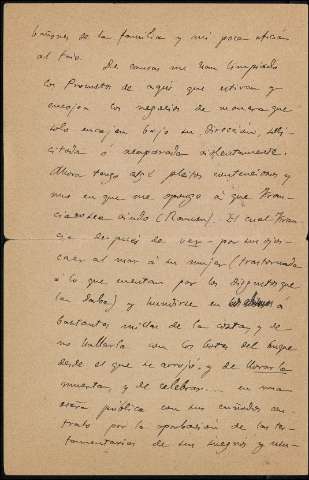 bañones de la familia y mi poca afición
al frio. De causas me han limpiado
los Promotos de aquí que estiran y
encojen los negocios de manera que
solo encajen bajo su dirección, soli-
citada ó acaparada violentamente.
Ahora tengo aquí pleitos contenciosos y
uno en que me opongo á que Fran-
cia sea viudo (Ramon). El cual Fran-
cia despues de ver - por sus ojos -
caer al mar á su mujer (trastornada
á lo que cuentan por los disgustos que
la daba) y hundirse en á
bastantes millas de la costa, y de
no hallarla con los botes del buque
desde el que se arrojó, y de llorarla
muerta, y de celebrar... en una
pública con sus cuñados con-
trato por la aprobacion de las tes-
tamentarías de sus suegros y